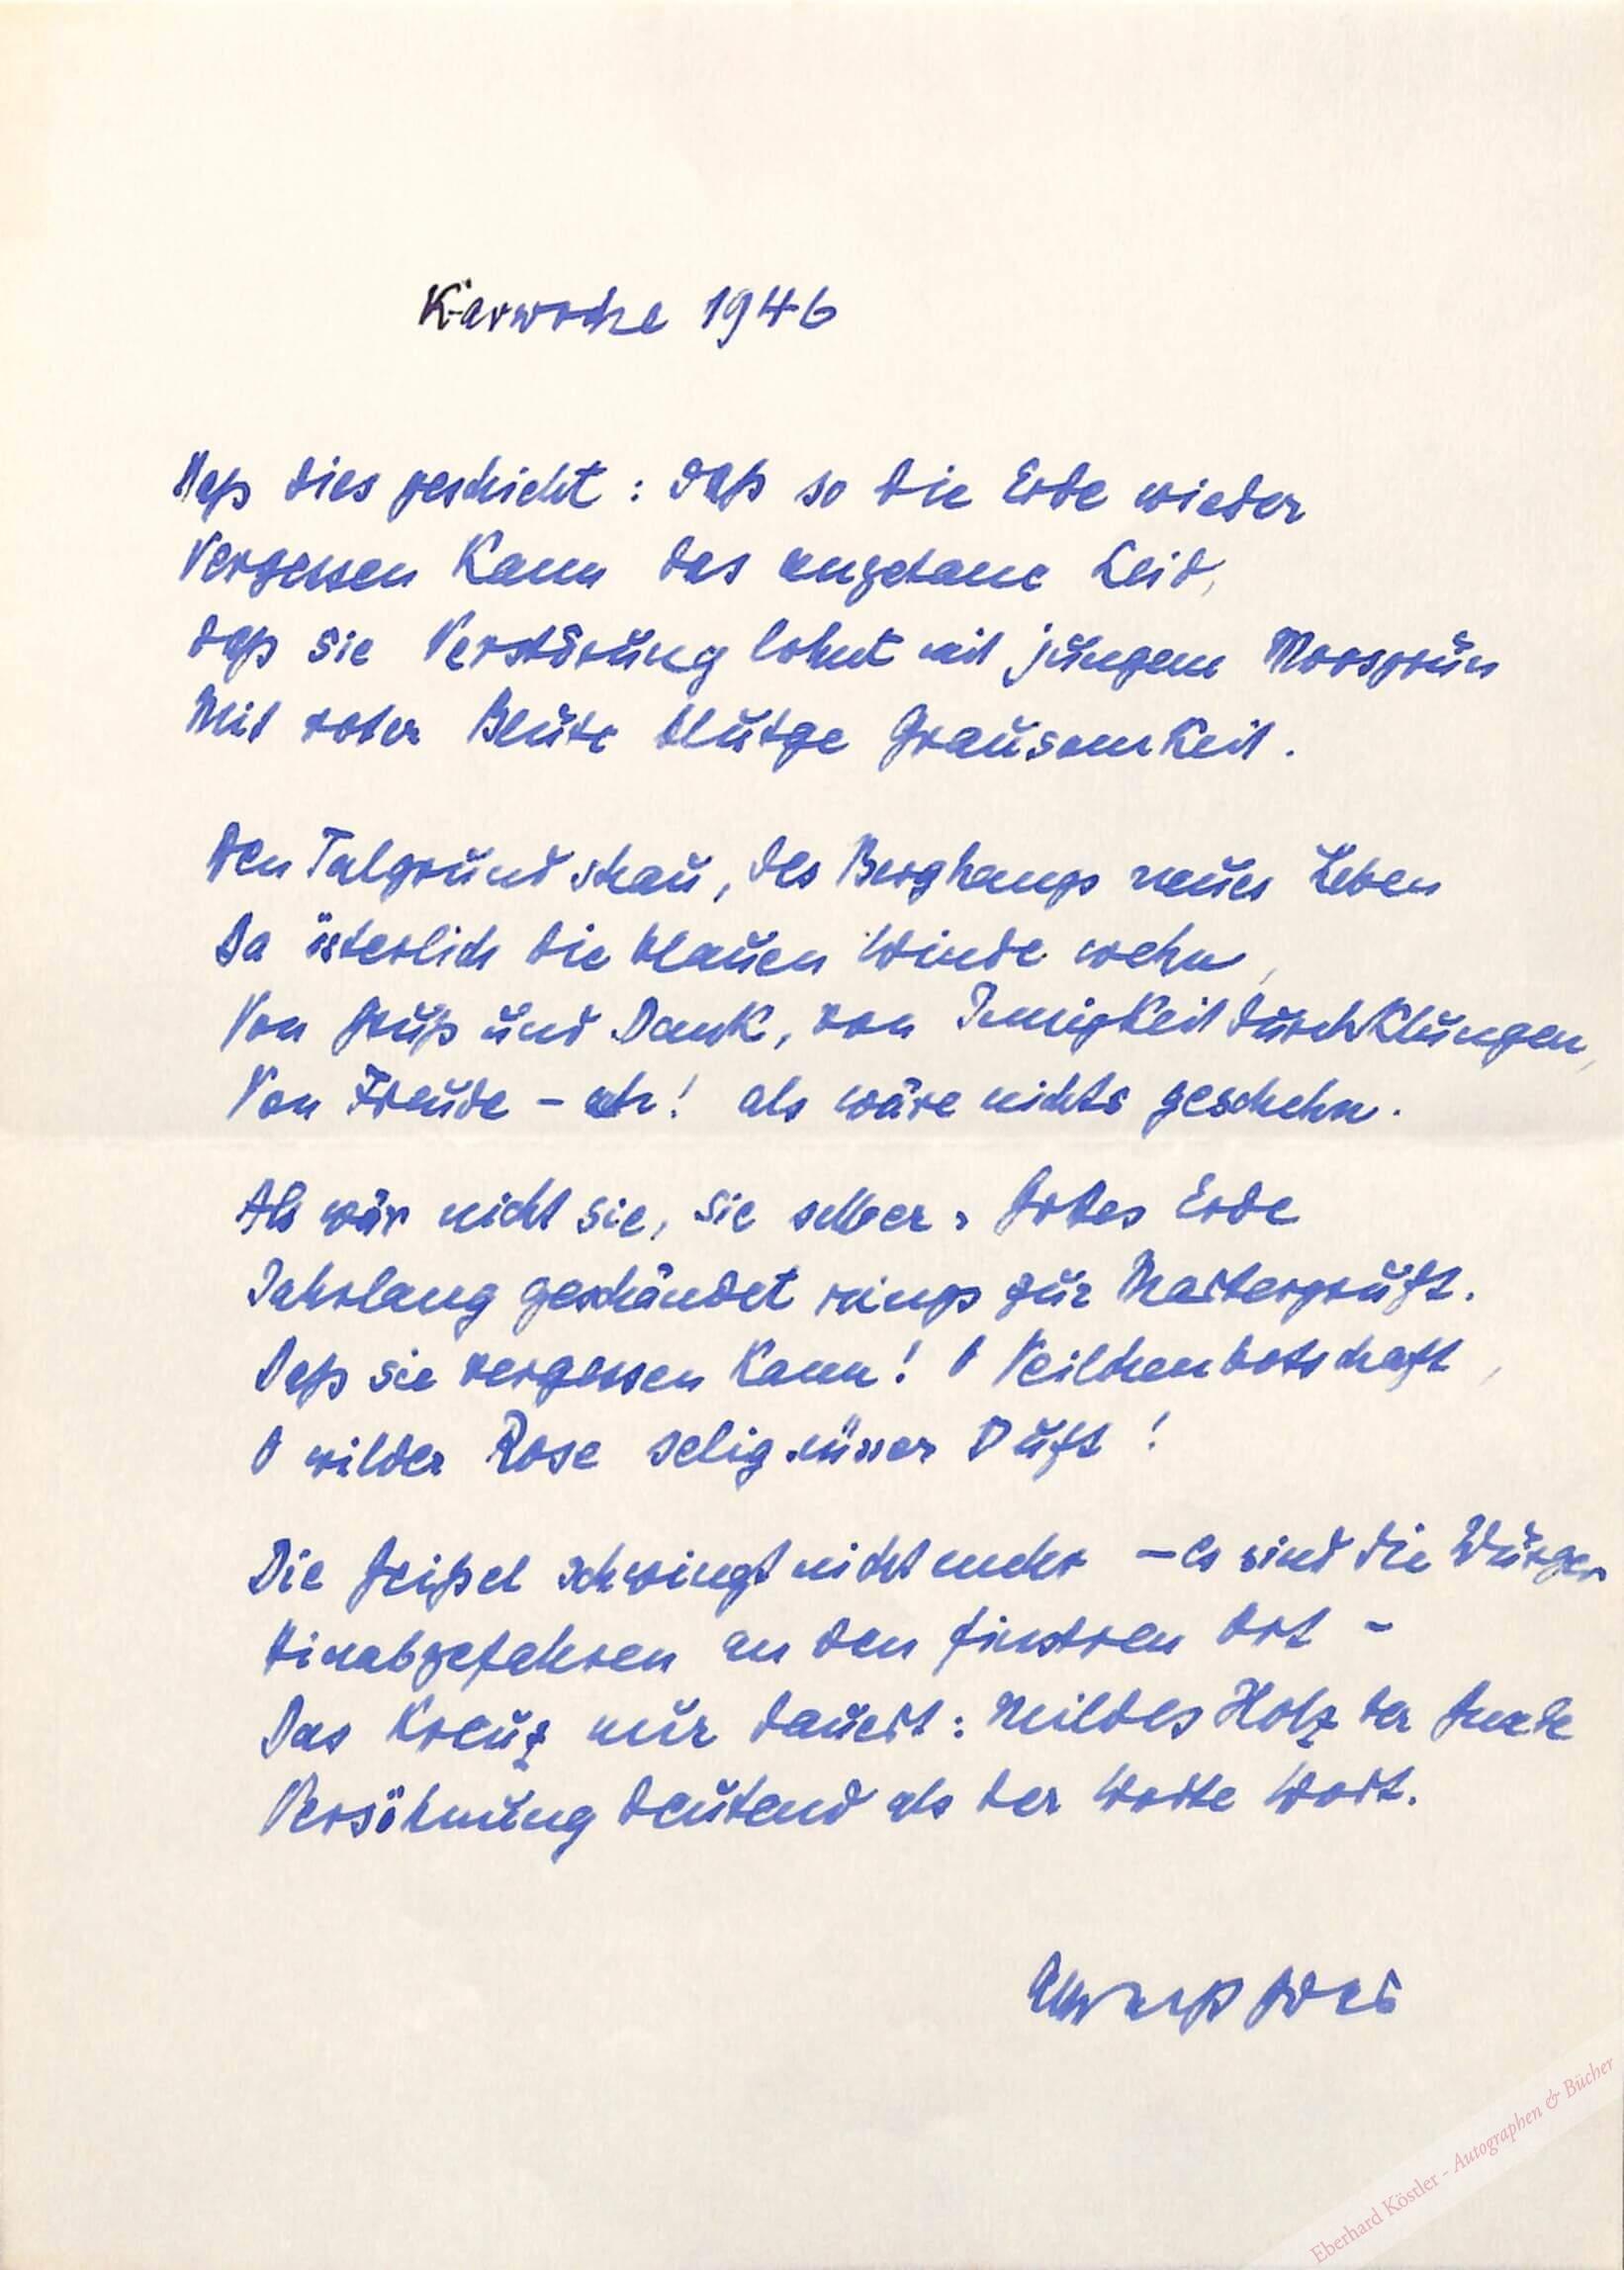 Karwoche 1946
Daß dies geschieht: daß so die Erde wieder
Vergessen kann das angetane Leid,
daß sie Verstörung lohnt mit jungem Moosgrün
Mit roter Blüte blutge Grausamkeit.
Den Talgrund schau, des Berghangs neues Leben
Da österlich die blauen Winde wehn,
Von Gruß und Dank, von Innigkeit durchklungen,
Von Freude – ach! als wäre nichts geschehn.
Als wär nicht sie, sie selber, Gottes Erde
Jahrlang geschändet rings zur Martergruft.
Daß sie vergessen kann! O Veilchenbotschaft,
O wilder Rose selig süsser Duft!
Die Geißel schwingt nicht mehr – es sind die Würger
Hinabgefahren an den finstren Ort –
Das Kreuz nur dauert: mildes Holz der Gnade
Versöhnung deutend als der Worte Wort.
Eberhard Köstler - Autographen & Bücher